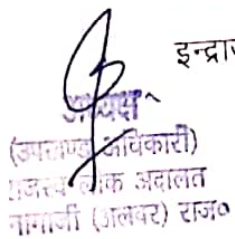 इन्द्राज
अध्यक्ष
(उपखण्ड अधिकारी)
राजस्व लोक अदालत
(अलवर) राज०